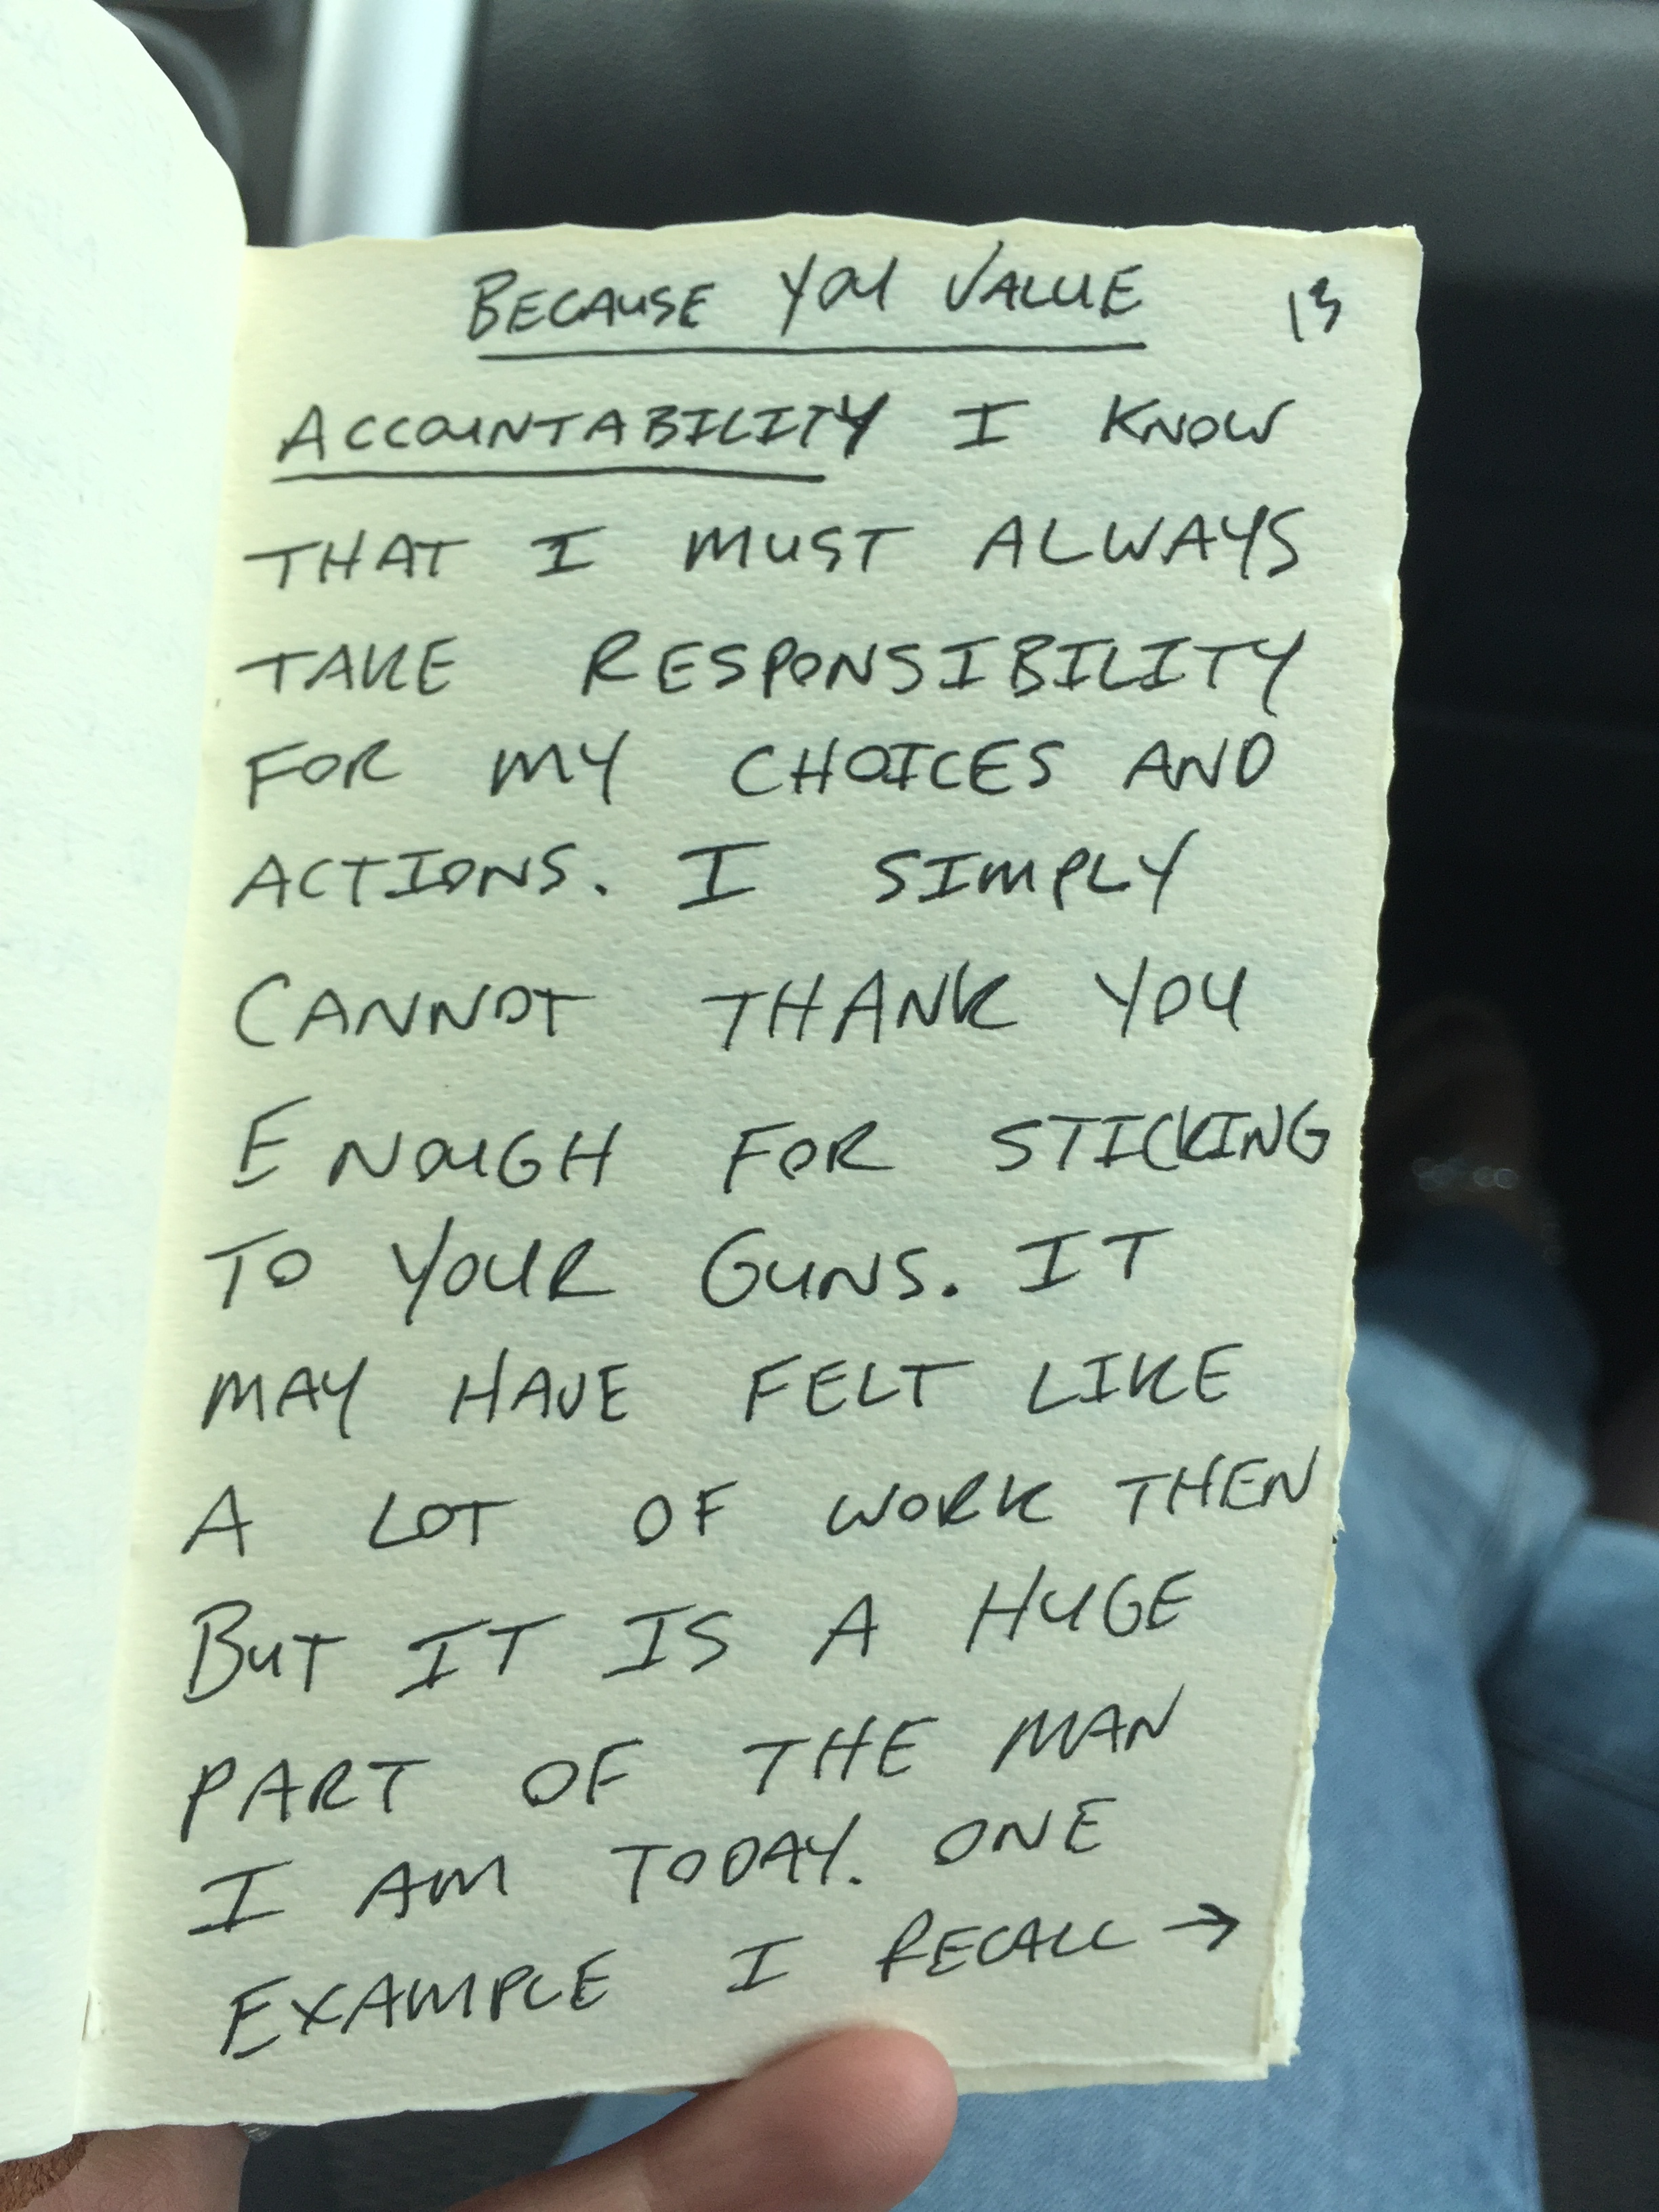 BECAUSE YOU VALUE 13
ACCOUNTABILITY I KNOW
THAT I MUST ALWAYS
TAKE RESPONSIBILITY
FOR MY CHOICES AND
ACTIONS. I SIMPLY
CANNOT THANK YOU
ENOUGH FOR STICKING
TO YOUR GUNS. IT
MAY HAVE FELT LIKE
A LOT OF WORK THEN
BUT IT IS A HUGE
PART OF THE MAN
I AM TODAY. ONE
EXAMPLE I RECALL →